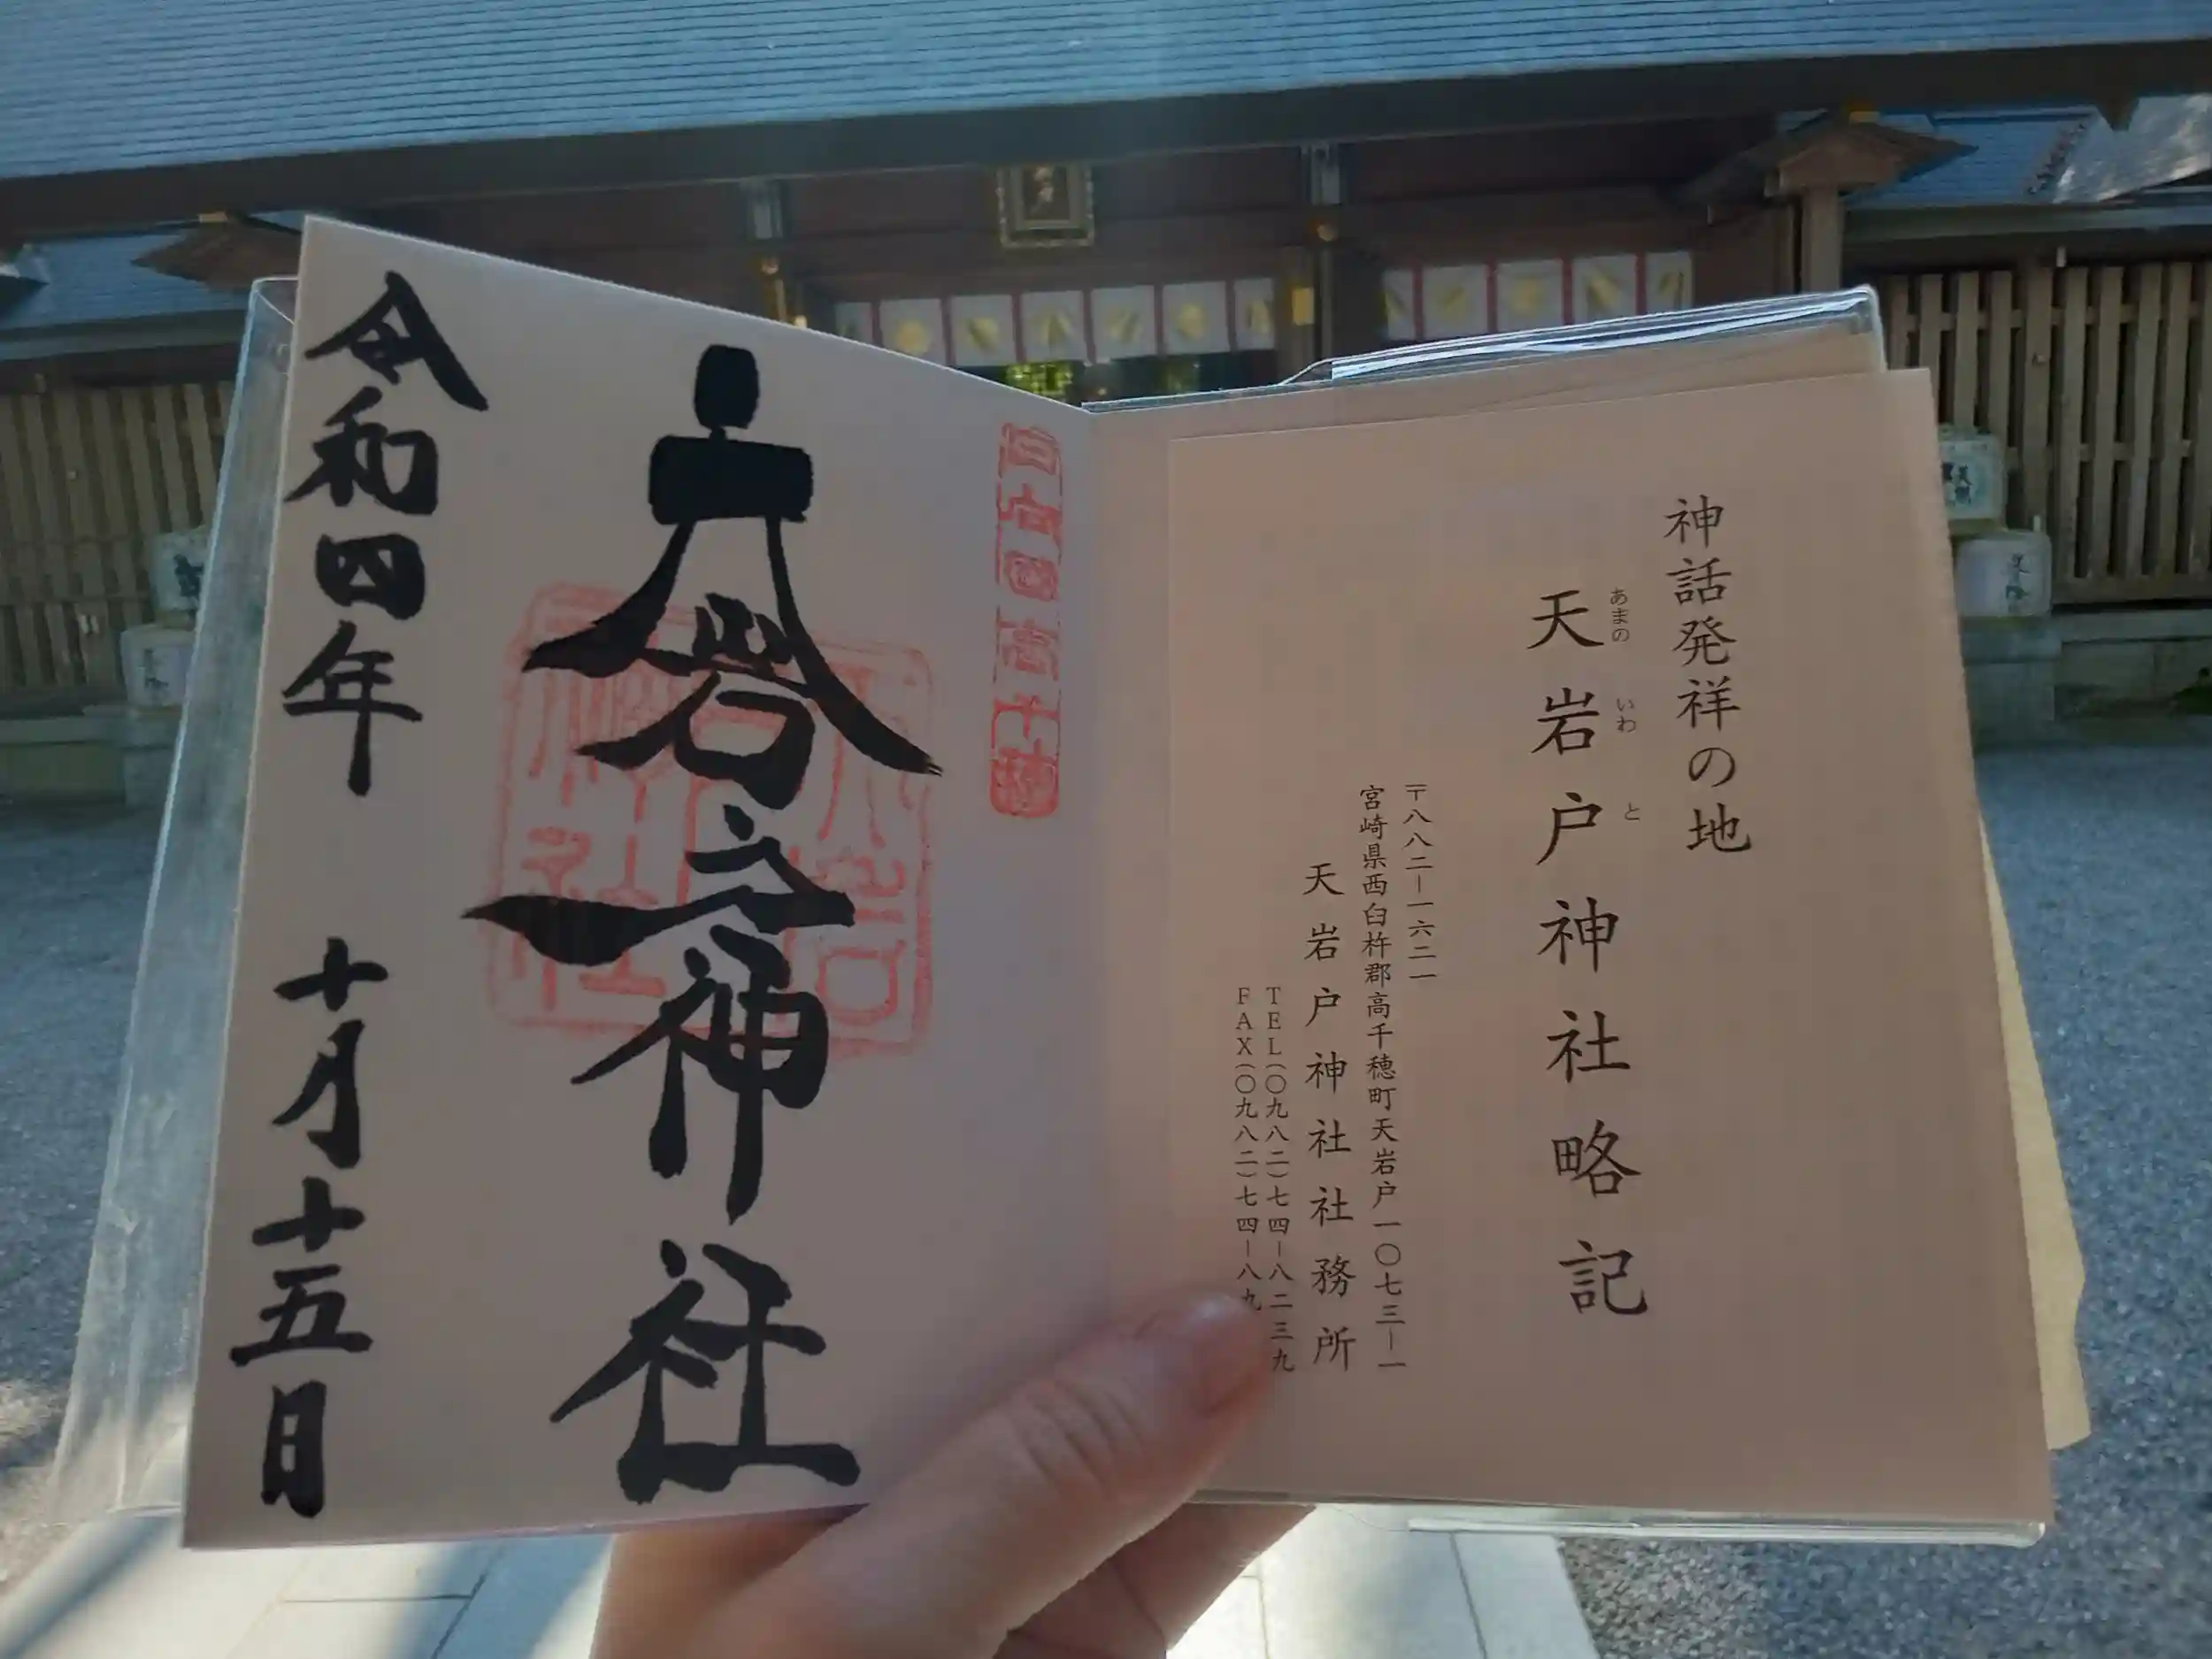 神話発祥の地
天岩戸神社略記
あまの いわ と
〒八八二ー一六二一
宮崎県西臼杵郡高千穂町天岩戸一〇七三ー一
天岩戸神社社務所
TEL(〇九八二)七四ー八二三九
FAX(〇九八二)七四ー八九
天岩戸神社
令和四年 十月十五日